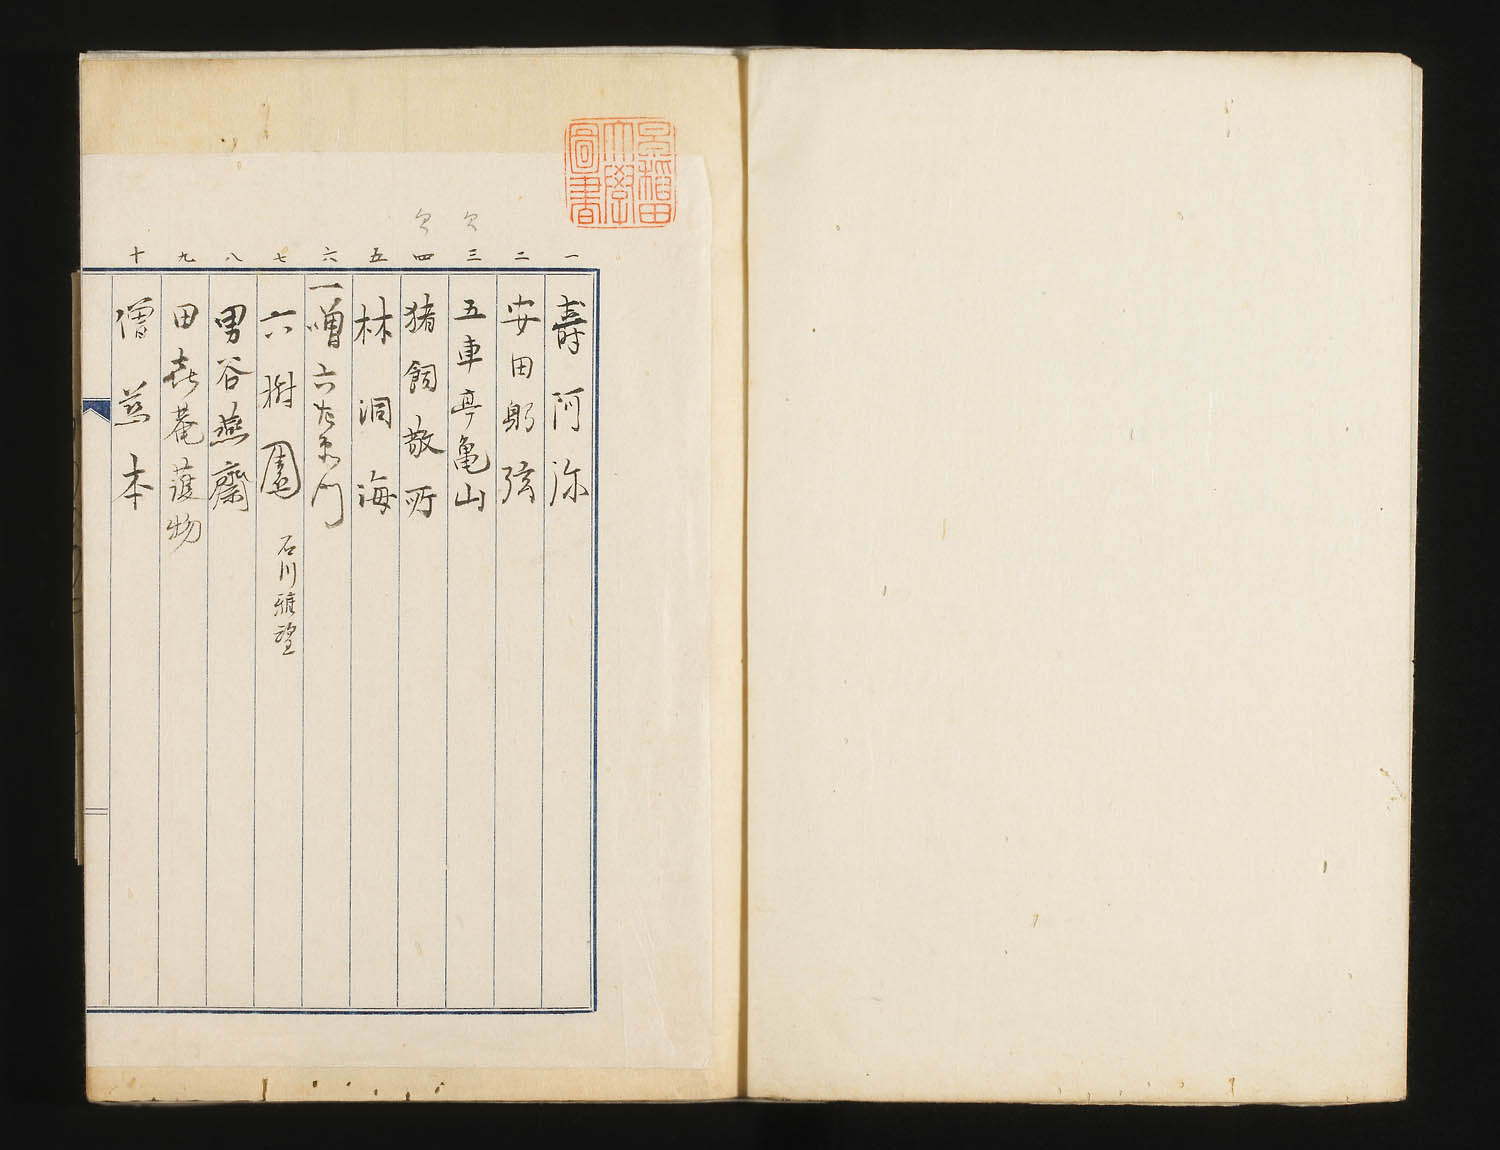 早稲田
大學
圖書
欠
欠
一
二
三
四
五
六
七
八
九
十
壽阿弥
安田躬弦
五車亭亀山
猪飼敬所
林洞海
一噌六左衛門
六樹園 石川雅望
男谷燕齋
田喜菴護物
僧慈本